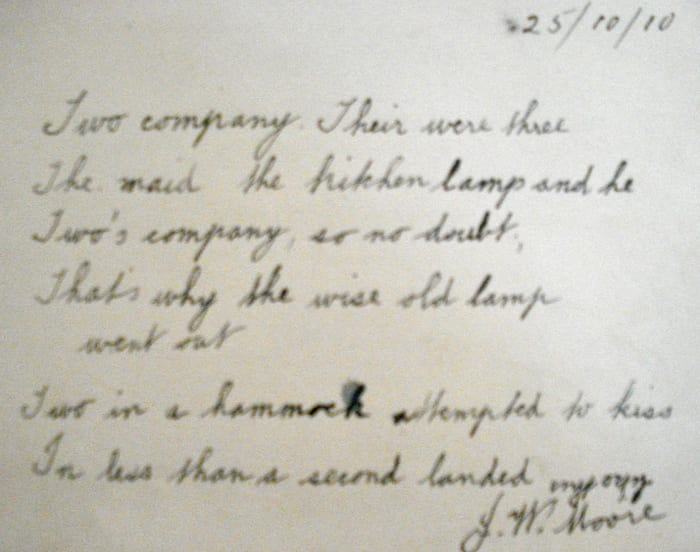 25/10/10
Two company. Their were three
The maid the kitchen lamp and he
Two's company, so no doubt,
That's why the wise old lamp
went out
Two in a hammock attempted to kiss
In less than a second landed
J. W. Moore